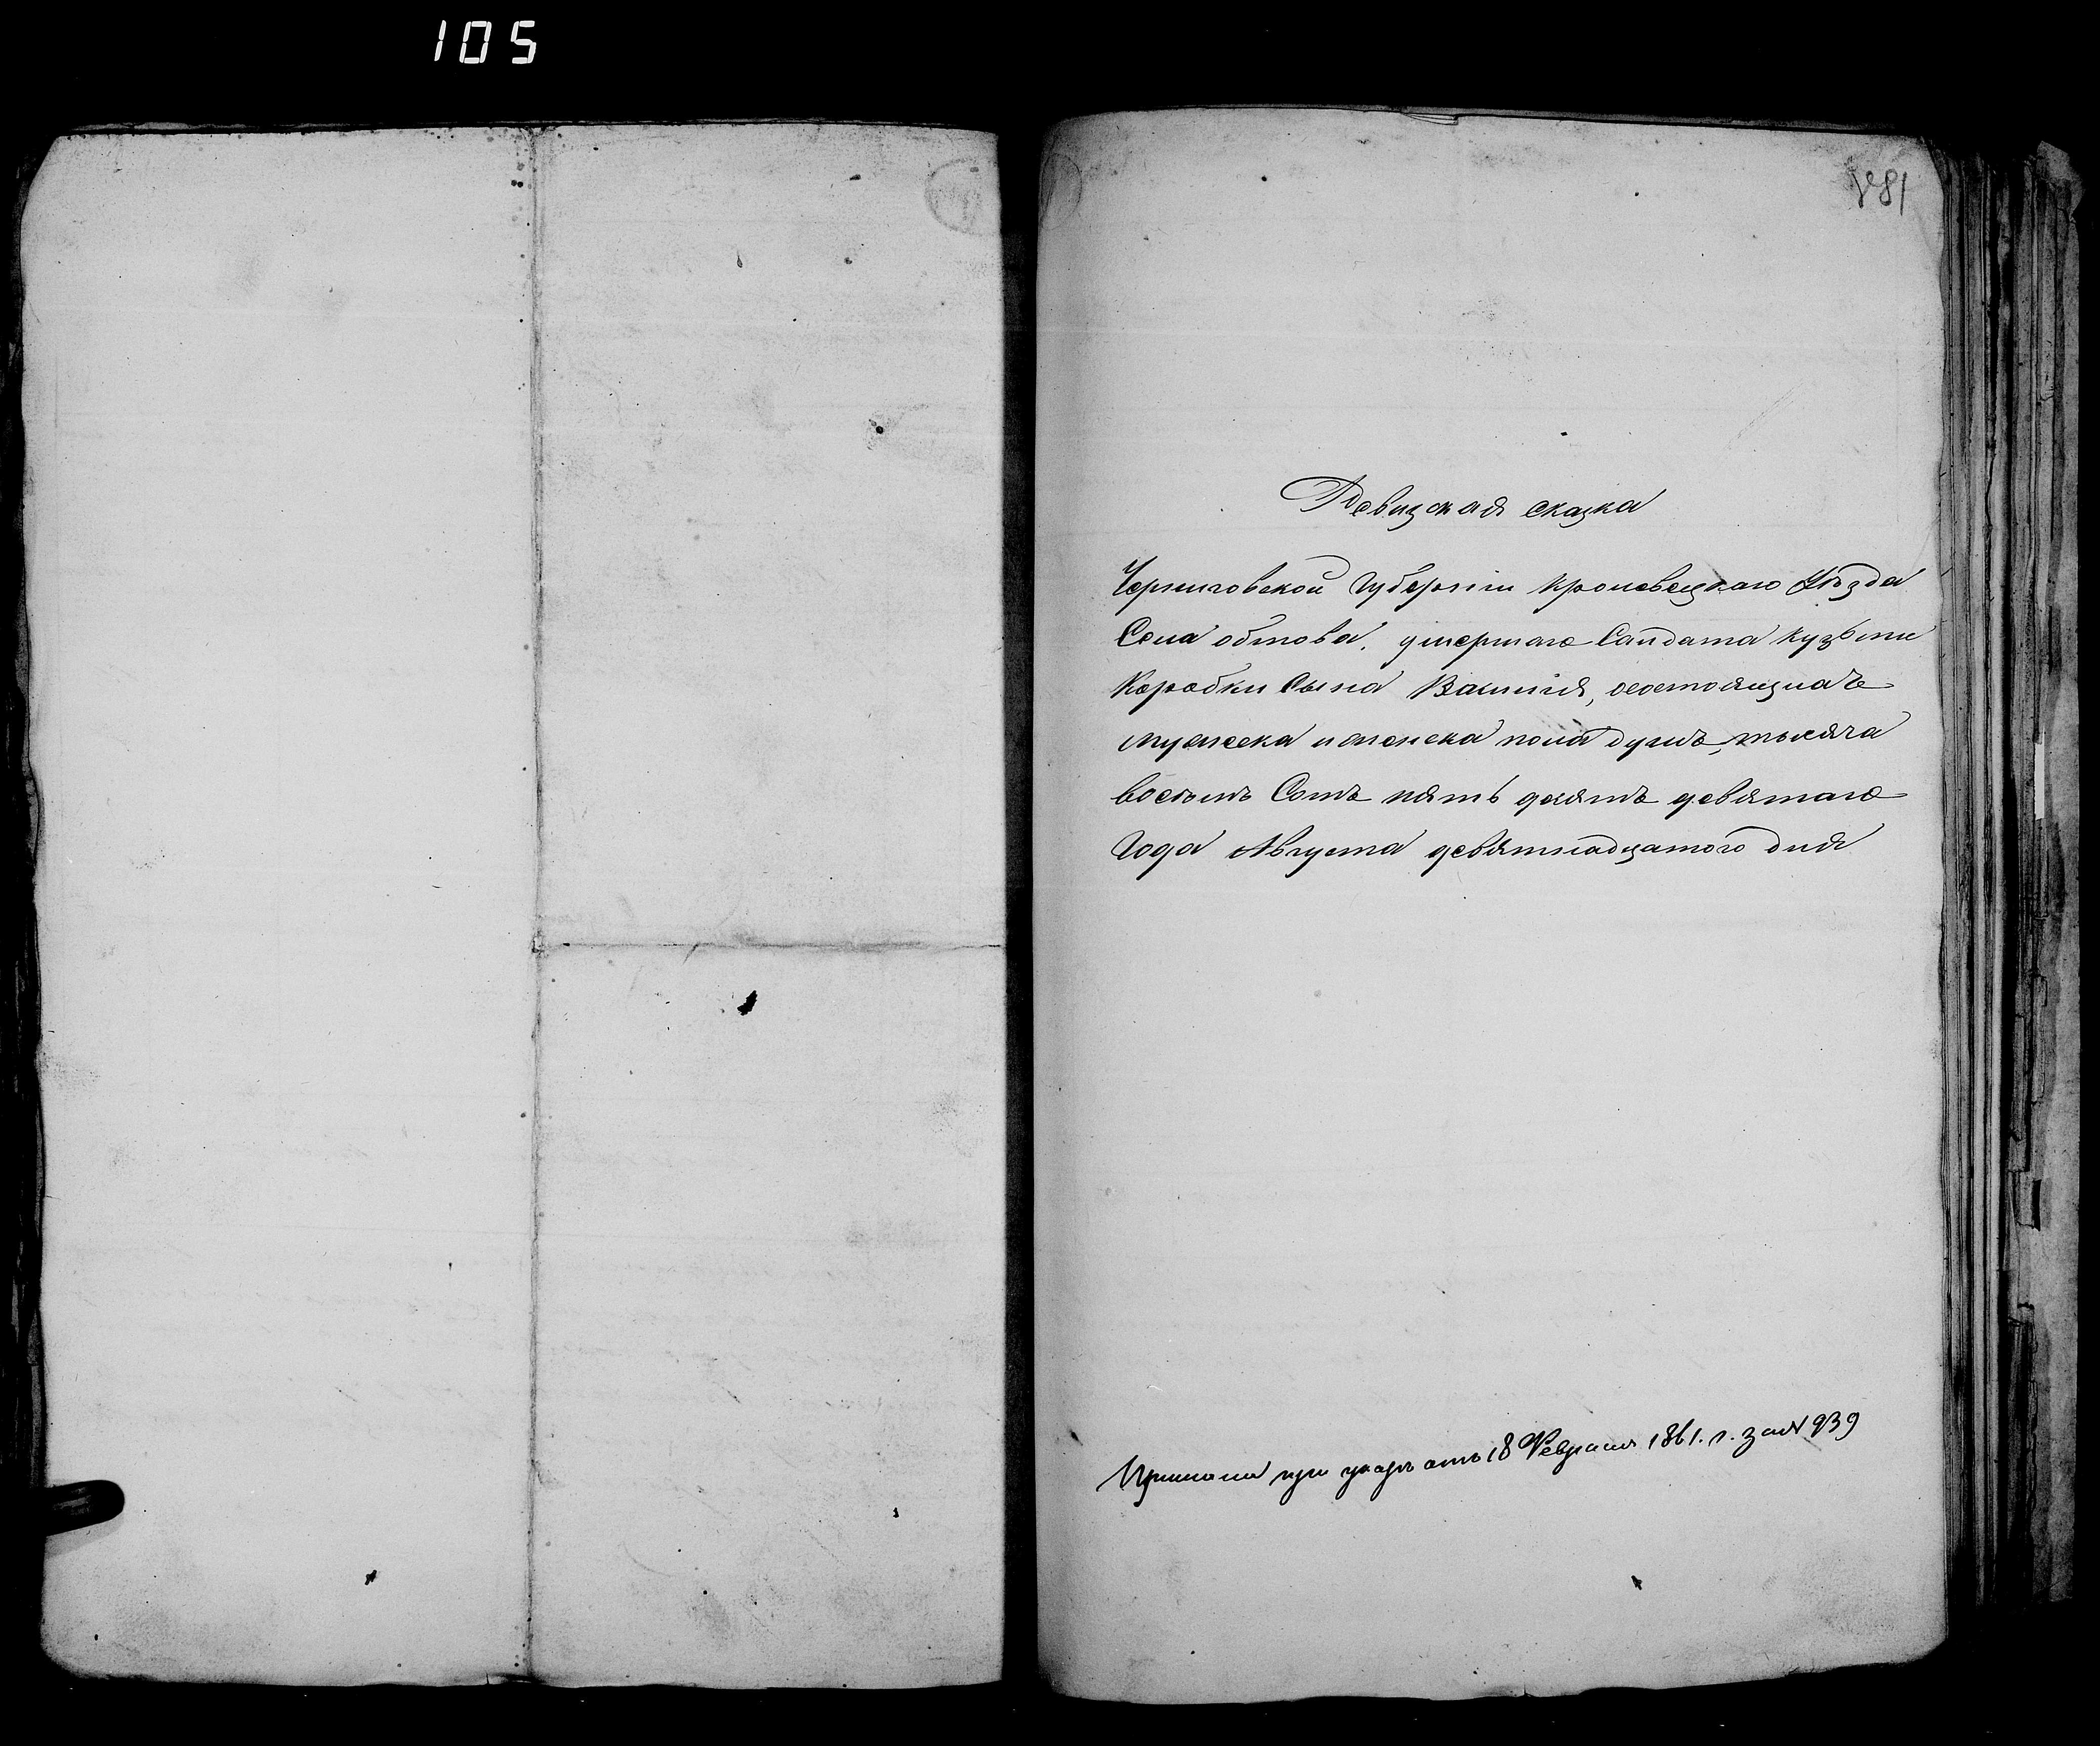 105
181
Ревизская сказка
Черниговской Губернии Кролевецкаго Уѣзда
Села обтова, умершаго Салдата Кузьми
Коробки Сына Василія, осостоящихъ
мужеска и женска пола душъ, тысяча
восемь Сотъ пять десятъ девятаго
Года Августа девятнадцатого дня
Прислана при указѣ отъ 18 Февраля 1861. г. за № 939